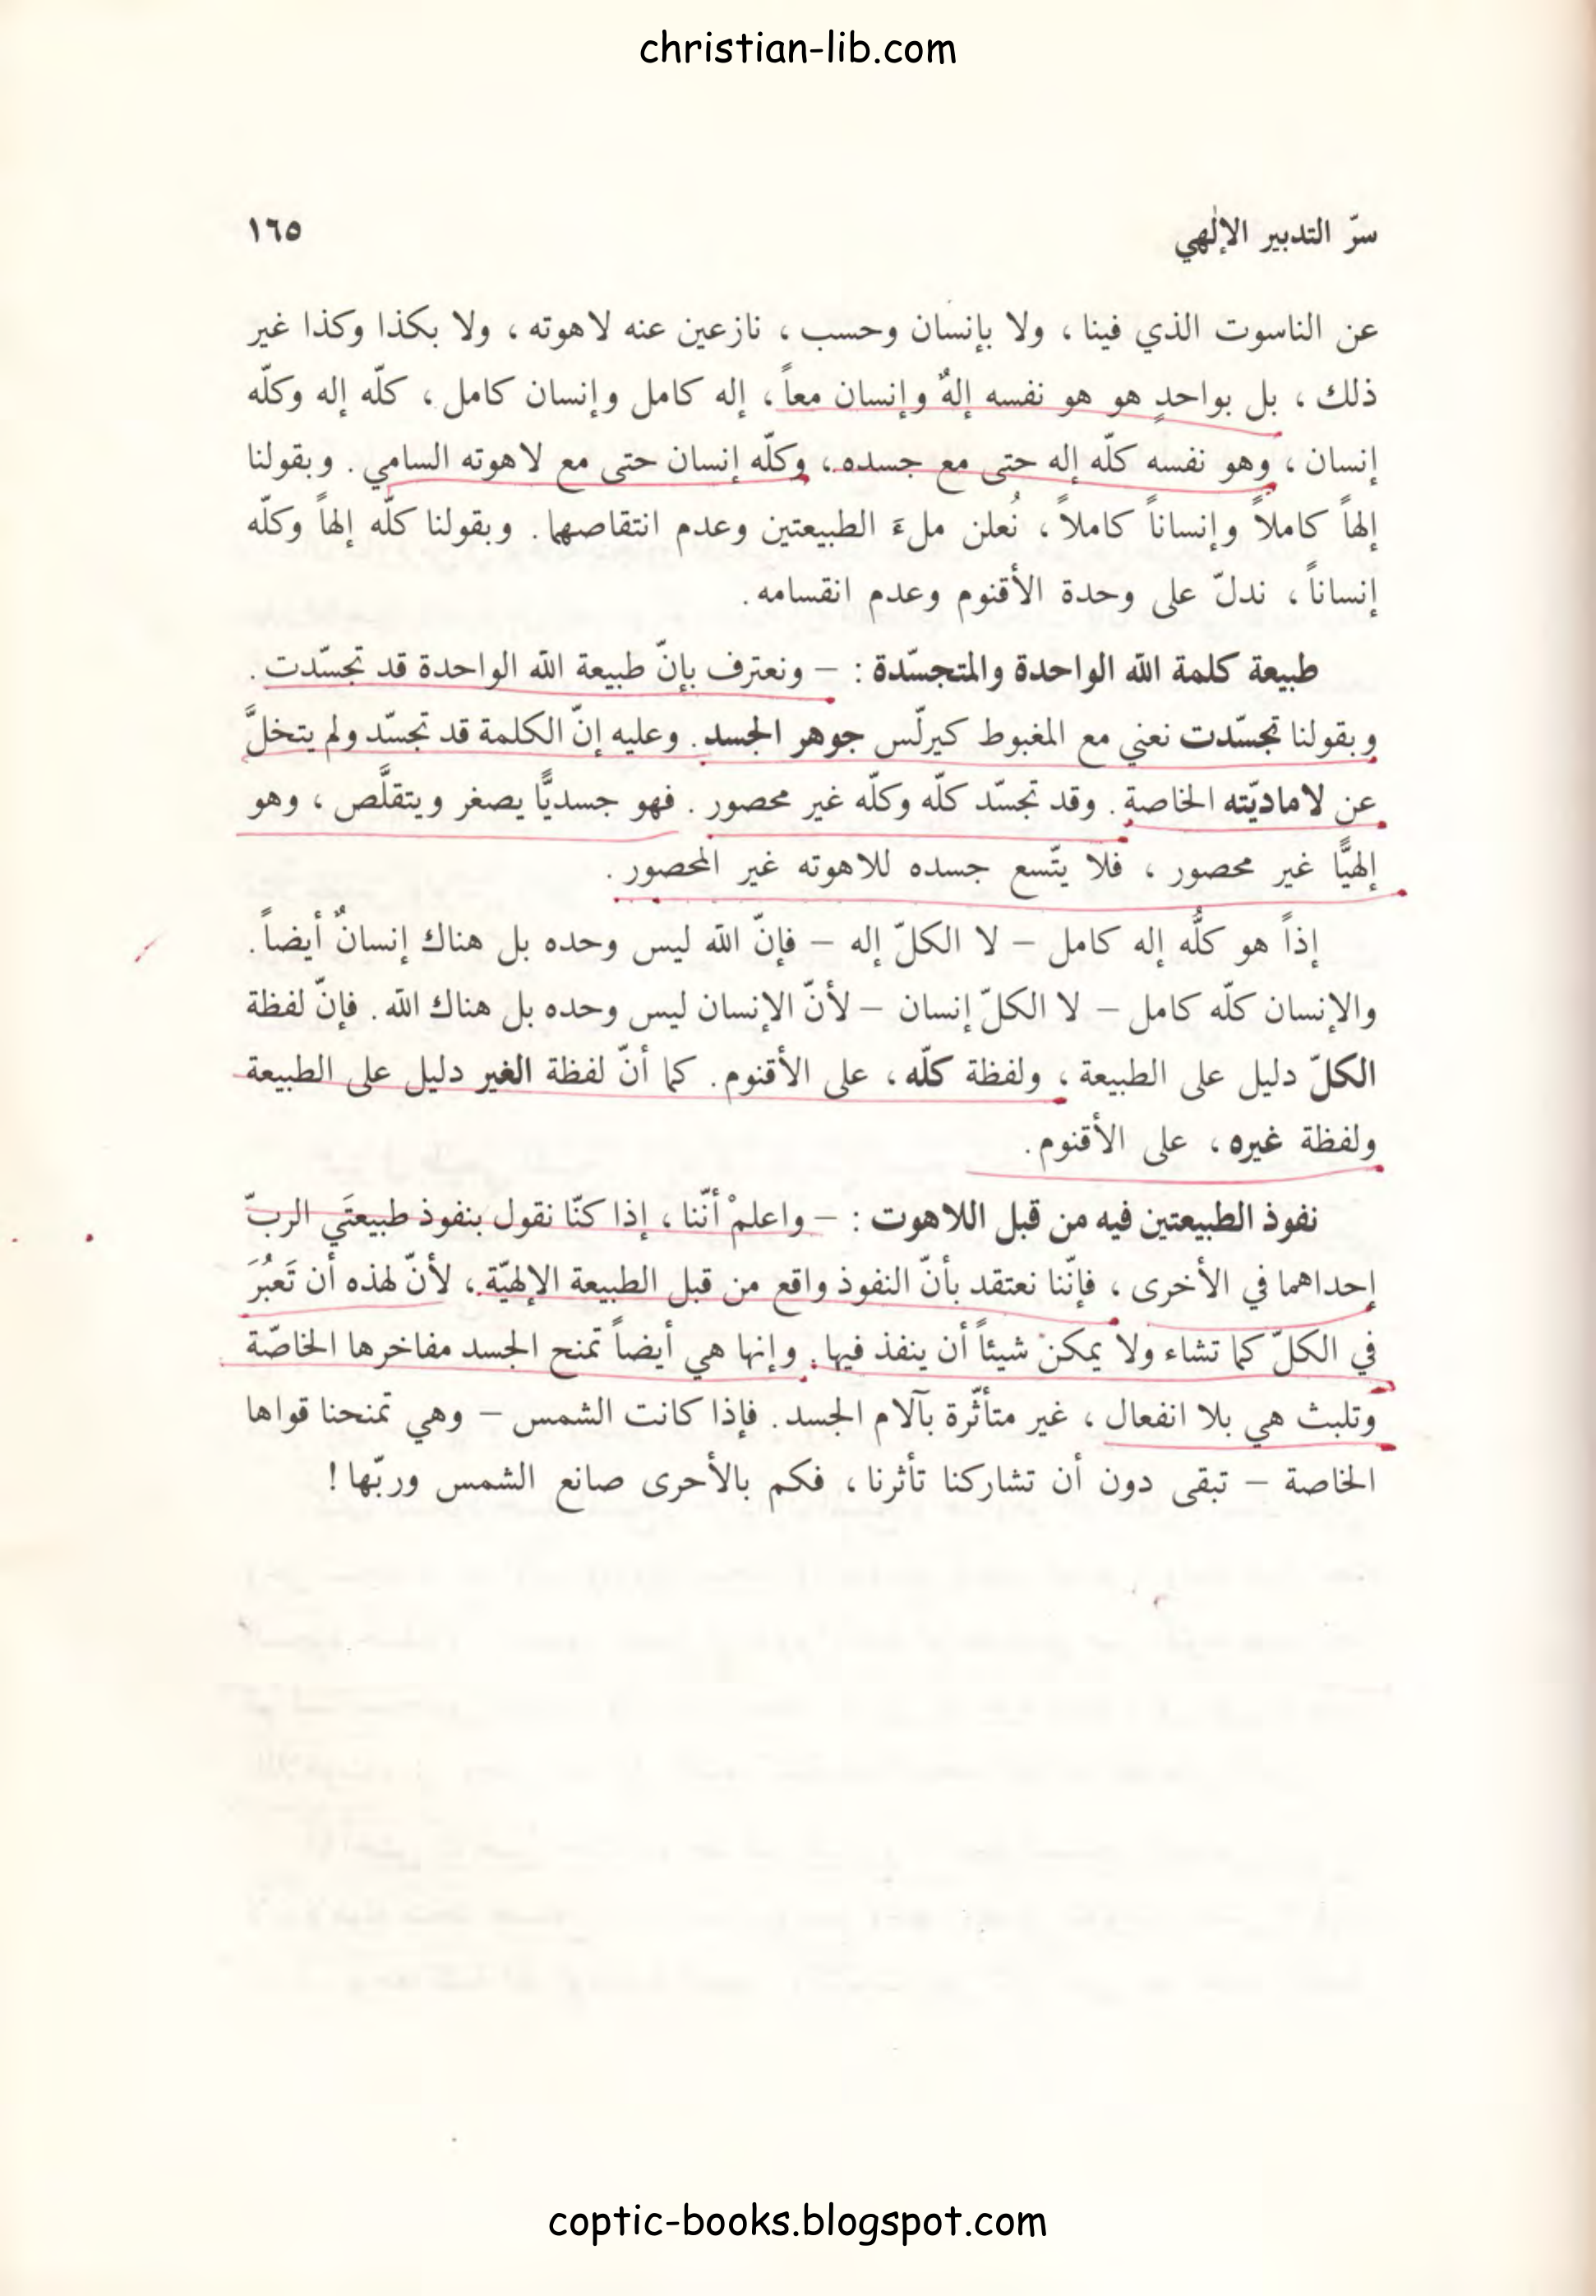 christian-lib.com
سرّ التدبير الإلٰهي
١٦٥
عن الناسوت الذي فينا ، ولا بإنسان وحسب ، نازعين عنه لاهوته ، ولا بكذا وكذا غير
ذلك ، بل بواحدٍ هو هو نفسه إلهٌ وإنسان معاً ، إله كامل وإنسان كامل ، كلّه إله وكلّه
إنسان ، وهو نفسه كلّه إله حتى مع جسده ، وكلّه إنسان حتى مع لاهوته السامي . وبقولنا
إلهاً كاملاً وإنساناً كاملاً ، نُعلن ملءَ الطبيعتين وعدم انتقاصهما . وبقولنا كلّه إلهاً وكلّه
إنساناً ، ندلّ على وحدة الأقنوم وعدم انقسامه .
طبيعة كلمة الله الواحدة والمتجسّدة : – ونعترف بإنّ طبيعة الله الواحدة قد تجسّدت .
وبقولنا تجسّدت نعني مع المغبوط كيرلّس جوهر الجسد . وعليه إنّ الكلمة قد تجسّد ولم يتخلَّ
عن لاماديّته الخاصة . وقد تجسّد كلّه وكلّه غير محصور . فهو جسديًّا يصغر ويتقلَّص ، وهو
إلهيًّا غير محصور ، فلا يتّسع جسده للاهوته غير المحصور .
إذاً هو كلُّه إله كامل – لا الكلّ إله – فإنّ الله ليس وحده بل هناك إنسانٌ أيضاً .
والإنسان كلّه كامل – لا الكلّ إنسان – لأنّ الإنسان ليس وحده بل هناك الله . فإنّ لفظة
الكلّ دليل على الطبيعة ، ولفظة كلّه ، على الأقنوم . كما أنّ لفظة الغير دليل على الطبيعة
ولفظة غيره ، على الأقنوم .
نفوذ الطبيعتين فيه من قبل اللاهوت : – واعلمْ أنّنا ، إذا كنّا نقول بنفوذ طبيعتَي الربّ
إحداهما في الأخرى ، فإنّنا نعتقد بأنّ النفوذ واقع من قبل الطبيعة الإلهيّة ، لأنّ لهذه أن تَعبُرَ
في الكلّ كما تشاء ولا يمكن شيئاً أن ينفذ فيها . وإنها هي أيضاً تمنح الجسد مفاخرها الخاصّة
وتلبث هي بلا انفعال ، غير متأثّرة بآلام الجسد . فإذا كانت الشمس – وهي تمنحنا قواها
الخاصة – تبقى دون أن تشاركنا تأثرنا ، فكم بالأحرى صانع الشمس وربّها !
coptic-books.blogspot.com